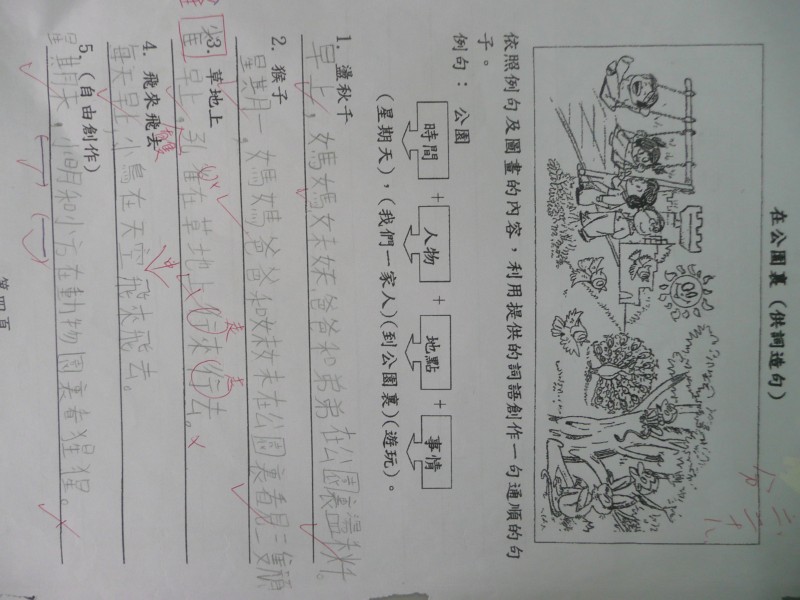 在公園裏（供詞造句）
依照例句及圖畫的內容，利用提供的詞語創作一句通順的句
子。
例句： 公園
時間 + 人物 + 地點 + 事情
（星期天），（我們一家人）（到公園裏）（遊玩）。
1. 盪秋千
早上，媽媽妹妹爸爸和弟弟在公園裏盪秋千。
2. 猴子
星其月一，媽媽爸爸和妹妹在公園裏看見三隻
3. 草地上
早上，孔雀在草地上行來行去。
4. 飛來飛去
每天早上，小鳥在天空飛來飛去。
5. （自由創作）
星期天，小明和小方在動物園裏看猩猩。
第四頁